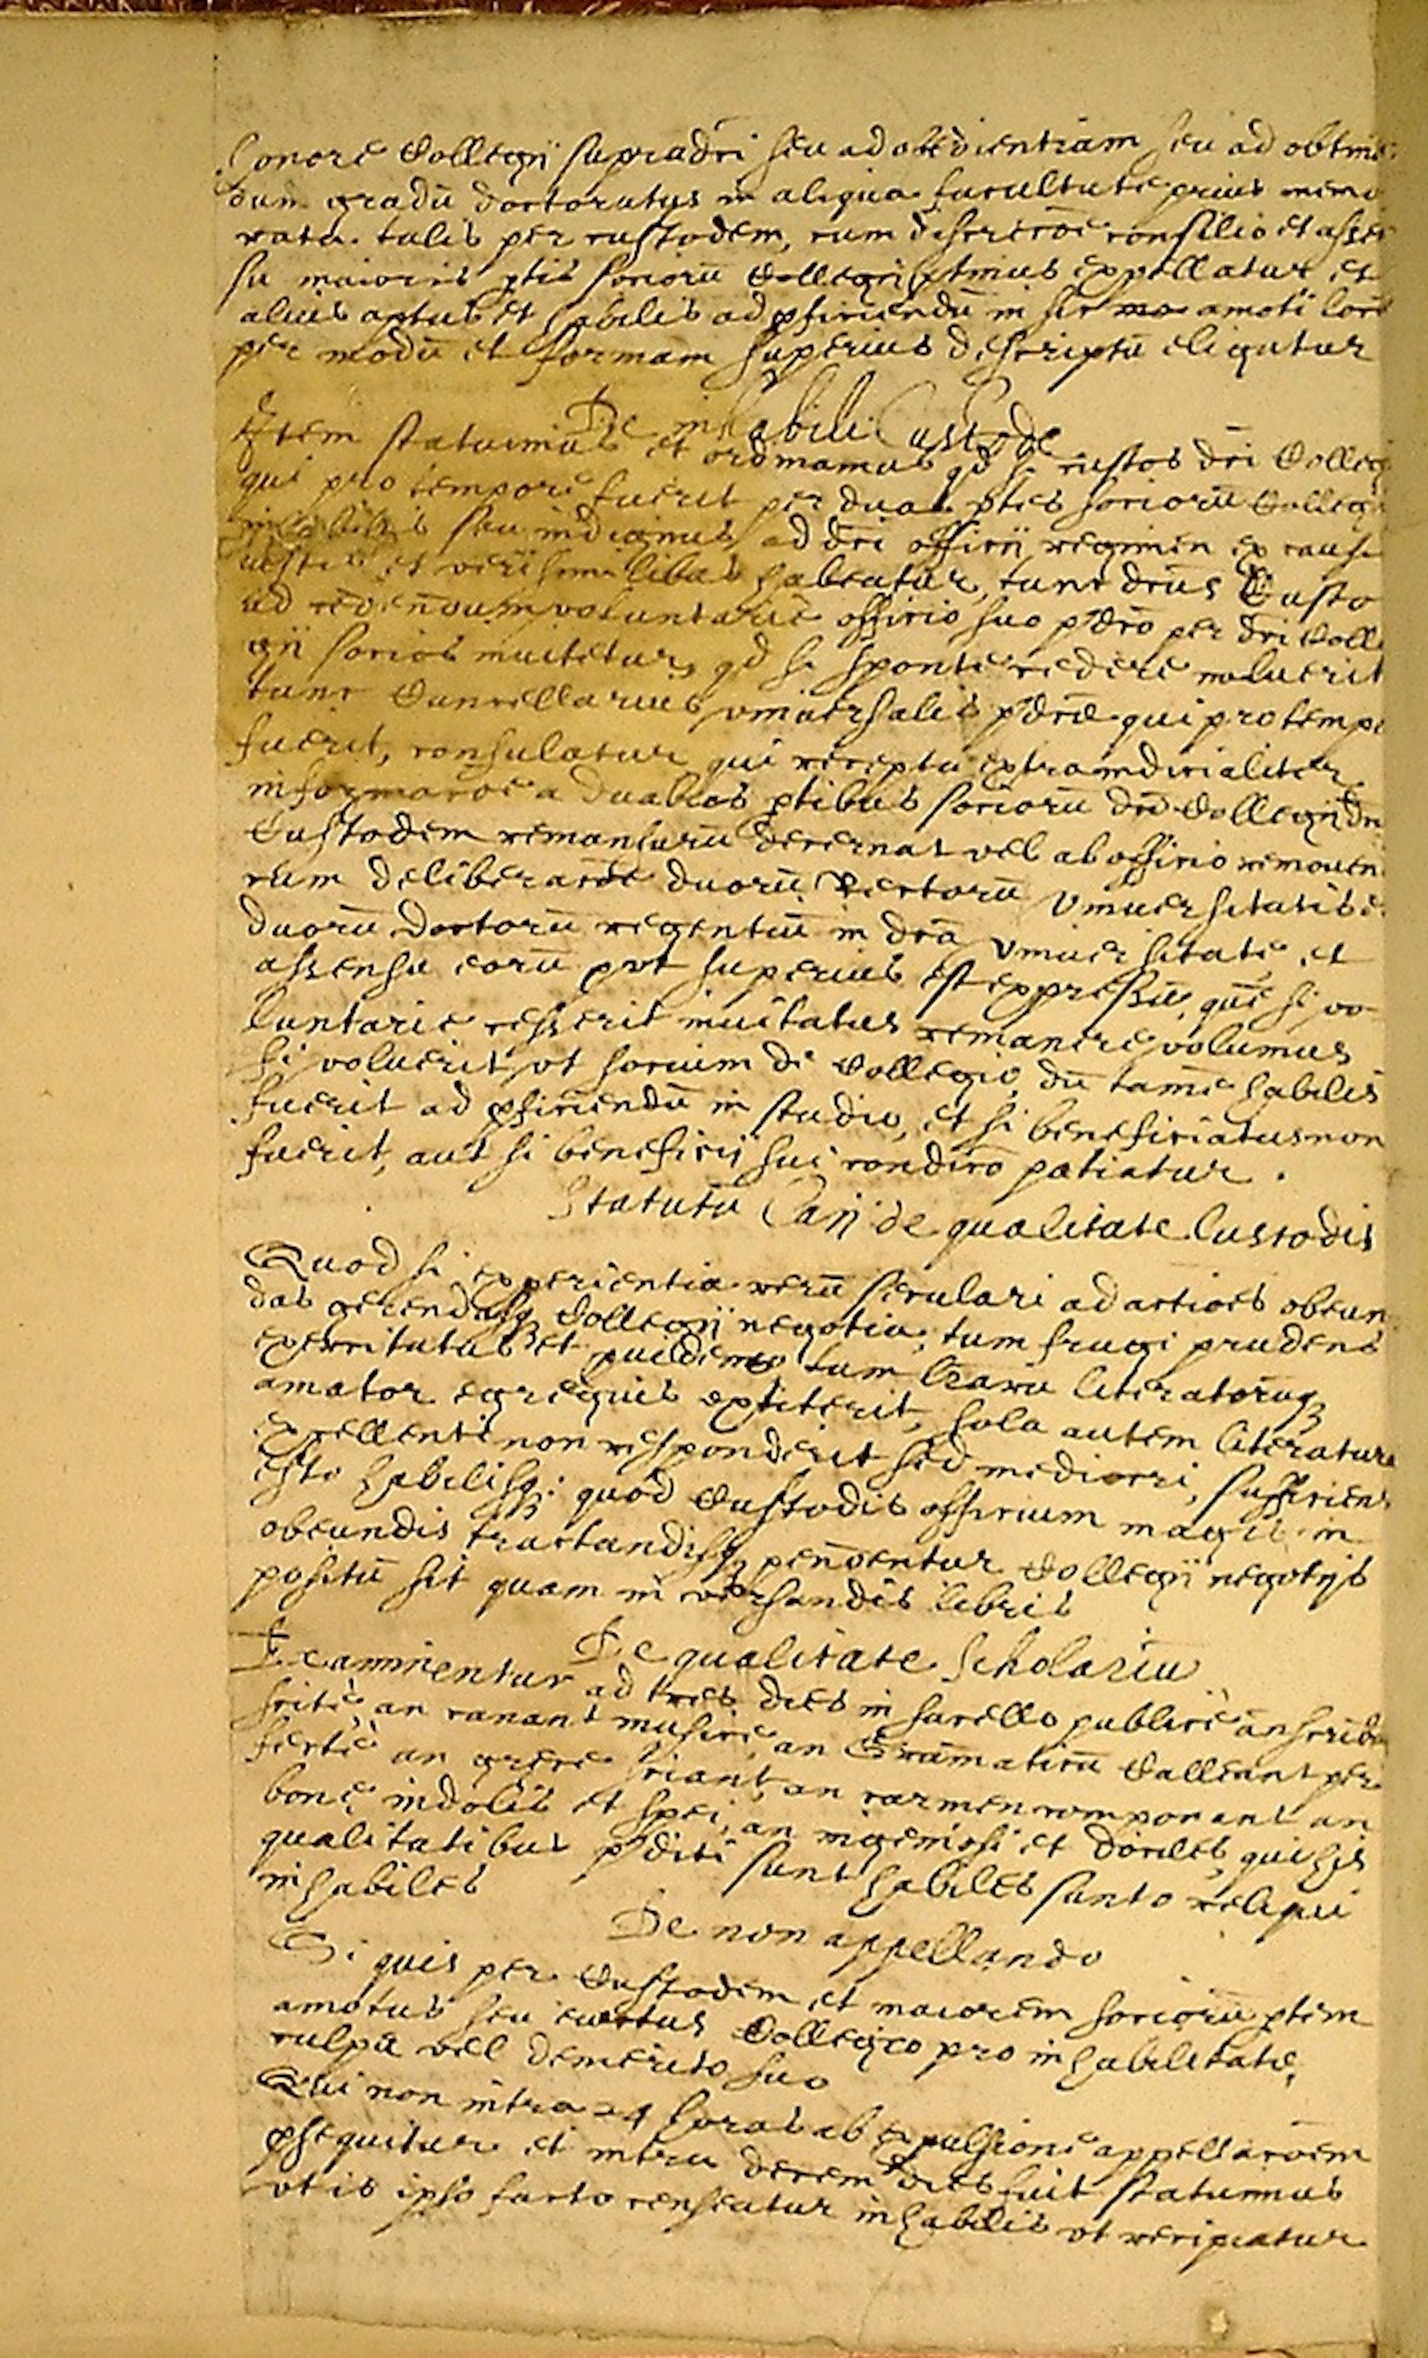 honore Collegij supradci seu ad obedientiam seu ad obtinen
dum gradū doctoratus in aliqua facultate prius memo
rata. talis per custodem, cum discrecoe consilio et assen
su maioris ptis sociorū Collegij ptinus expellatur et
alius aptus et habilis ad pficiendū in sic amoti loco
per modū et formam superius descriptū eligatur
De inhabili Custode
Item statuimus et ordinamus qd si custos dci Collegij
qui pro tempore fuerit per duas ptes sociorū Collegij
inhabilis seu indignus ad dci officij regimen ex causis
iustis et verisimilibus habeatur, tunc dcus Custo
ad cedendum voluntarie officio suo pdco per dci Colle
gij socios invitetur, qd si sponte cedere noluerit
tunc Cancellarius vniversalis pdcæ qui pro tempo
fuerit, consulatur qui recepta extraiudicialiter
informacoe a duabus ptibus sociorū dci Collegij dcu
Custodem remansurū decernat vel ab officio removen
cum deliberacoe duorū Rectorū Vniuersitatis e
duorū Doctorū regentiū in dca Vniuersitate, et
assensu eorū pvt superius est expressū, que si vo
luntarie cesserit invitatus remanere volumus
si voluerit, vt socium de Collegio, dū tame habilis
fuerit ad pficiendū in studio, et si beneficiatus non
fuerit, aut si beneficij sui condico patiatur.
Statutū Caij de qualitate Custodis
Quod si experientia rerū seculari ad actioes obeun
das gerendasq Collegij negotia, tum frugi prudens
exercitatus et pudens tum lrarū literatorūq
amator egregius extiterit, sola autem literatura
excellenti non responderit sed mediocri, sufficiens
esto habilisq: quod Custodis officium magis in
obeundis tractandisq pendentur Collegij negotijs
positū sit quam in versandis libris
De qualitate Scholariū
Examinentur ad tres dies in sacello publicè an scribā
scite, an canant musice, an Gramaticū calleant per
fecte an grece sciant, an carmen componant an
bonę indolis et spei, an ingeniosi et dociles, qui his
qualitatibus pditi sunt habiles sunto reliqui
inhabiles
De non appellando
Si quis per Custodem et maiorem sociorū ptem
amotus seu eiectus Collegio pro inhabilitate,
culpa vel demerito suo
Qui non intra 24 horas ab expulsione appellacoem
psequitur et intra decem dies suit statuimus
vt is ipso facto censeatur inhabilis vt recipiatur